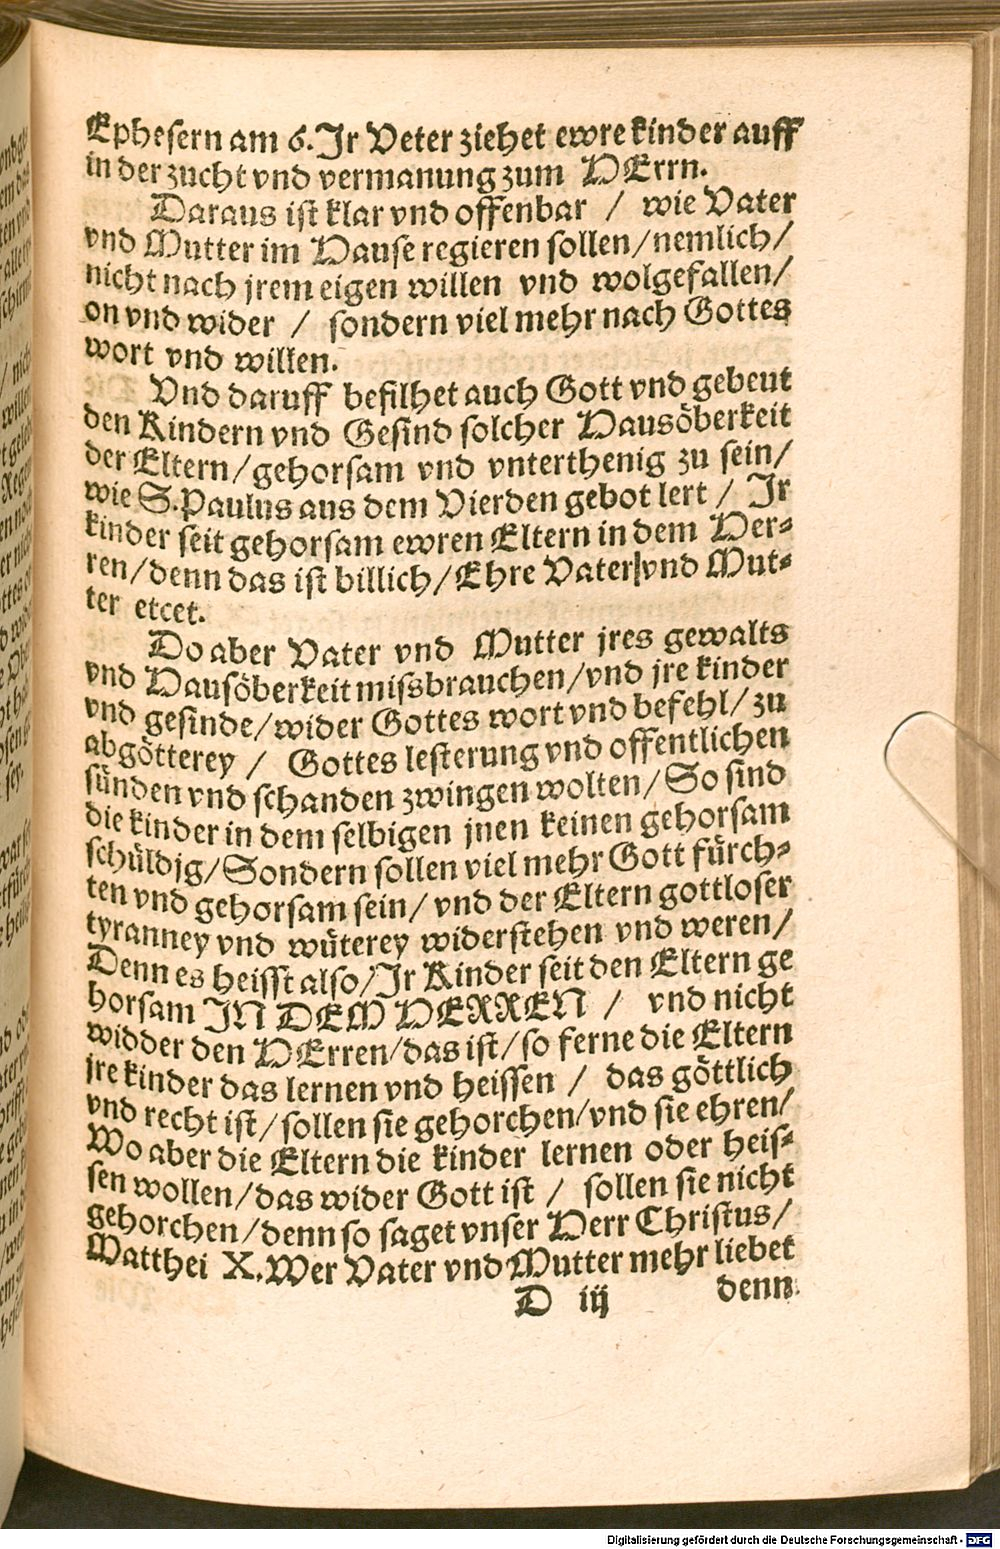 Ephesern am 6. Jr Veter ziehet ewre kinder auff
in der zucht vnd vermanung zum HErrn.
Daraus ist klar vnd offenbar / wie Vater
vnd Mutter im Hause regieren sollen/nemlich/
nicht nach jrem eigen willen vnd wolgefallen/
on vnd wider / sondern viel mehr nach Gottes
wort vnd willen.
Vnd daruff befilhet auch Gott vnd gebeut
den Kindern vnd Gesind solcher Hausöberkeit
der Eltern/gehorsam vnd vnterthenig zu sein/
wie S.Paulus aus dem Vierden gebot lert / Jr
kinder seit gehorsam ewren Eltern in dem Her-
ren/denn das ist billich/Ehre Vater|vnd Mut-
ter etcet.
Do aber Vater vnd Mutter jres gewalts
vnd Hausöberkeit missbrauchen/vnd jre kinder
vnd gesinde/wider Gottes wort vnd befehl/zu
abgötterey / Gottes lesterung vnd offentlichen
sünden vnd schanden zwingen wolten/So sind
die kinder in dem selbigen jnen keinen gehorsam
schüldjg/Sondern sollen viel mehr Gott fürch-
ten vnd gehorsam sein/ vnd der Eltern gottloser
tyranney vnd wüterey widerstehen vnd weren/
Denn es heisst also/Jr Kinder seit den Eltern ge
horsam IN DEM HERREN / vnd nicht
widder den HErren/das ist/so ferne die Eltern
jre kinder das lernen vnd heissen / das göttlich
vnd recht ist/sollen sie gehorchen/vnd sie ehren/
Wo aber die Eltern die kinder lernen oder heis-
sen wollen/das wider Gott ist / sollen sie nicht
gehorchen/denn so saget vnser Herr Christus/
Matthei X.Wer Vater vnd Mutter mehr liebet
D iij denn
Digitalisierung gefördert durch die Deutsche Forschungsgemeinschaft - DFG